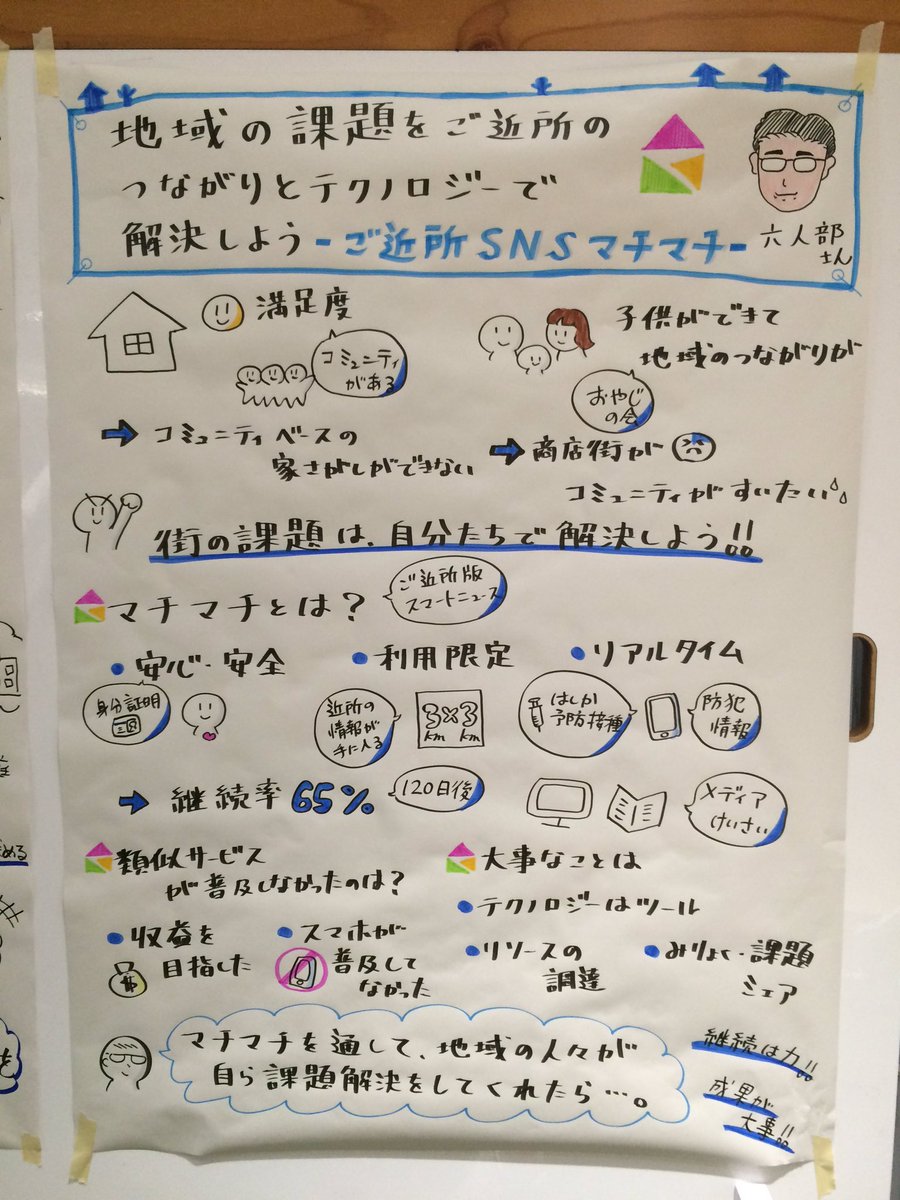 地域の課題をご近所の
つながりとテクノロジーで
解決しよう-ご近所SNSマチマチ-
六人部
さん
満足度
コミュニティ
がある
→コミュニティベースの
家さがしができない
子供ができて
地域のつながりが
おやじ
の会
→商店街が
コミュニティがすいたい
街の課題は、自分たちで解決しよう!!
マチマチとは?
ご近所版
スマートニュース
•安心・安全
•利用限定
•リアルタイム
身分証明
近所の
情報が
手に入る
3×3
km km
はしか
予防接種
防犯
情報
→継続率65%
120日後
メディア
けいさい
類似サービス
が普及しなかったのは?
•収益を
目指した
•スマホが
普及して
なかった
大事なことは
•テクノロジーはツール
•リソースの
調達
•みりょく・課題
シェア
マチマチを通して、地域の人々が
自ら課題解決をしてくれたら…。
継続は力!!
成果が
大事!!